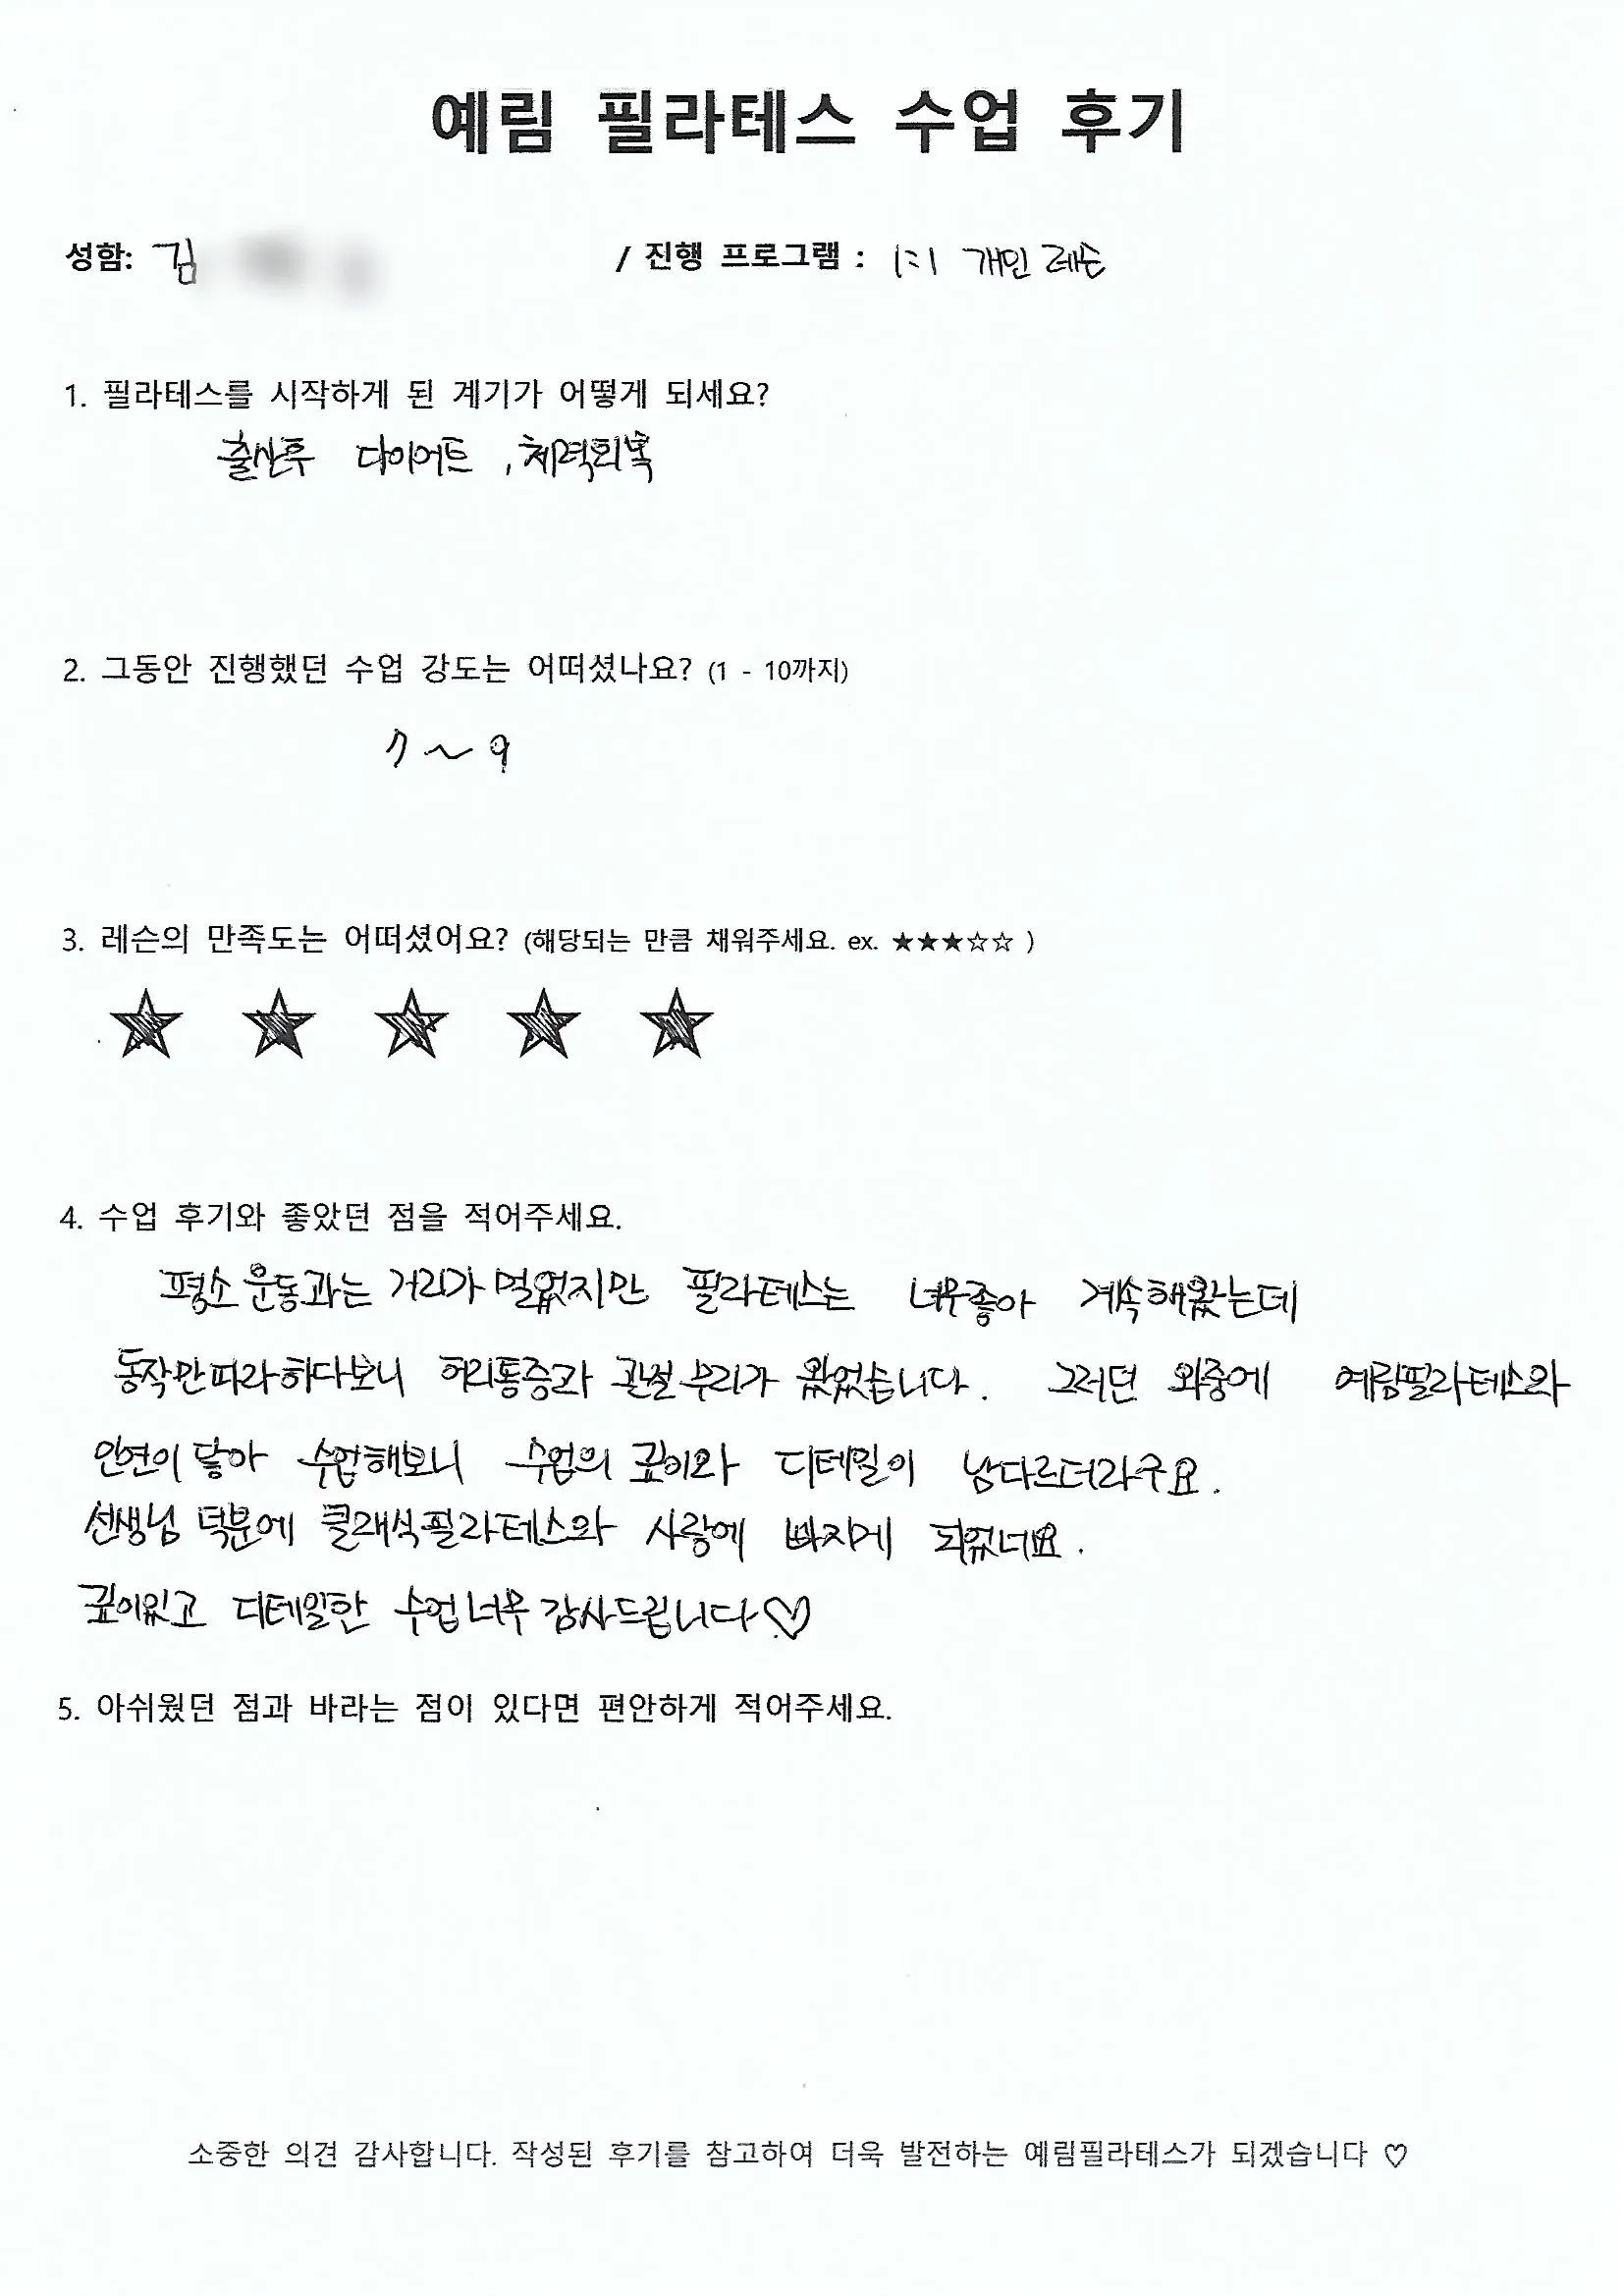 예림 필라테스 수업 후기
성함: 김 / 진행 프로그램 : 1:1 개인 레슨
1. 필라테스를 시작하게 된 계기가 어떻게 되세요?
출산후 다이어트, 체력회복
2. 그동안 진행했던 수업 강도는 어떠셨나요? (1 - 10까지)
7~9
3. 레슨의 만족도는 어떠셨어요? (해당되는 만큼 채워주세요. ex. ★★★☆☆ )
★ ★ ★ ★ ★
4. 수업 후기와 좋았던 점을 적어주세요.
평소 운동과는 거리가 멀었지만 필라테스는 너무좋아 계속해왔는데
동작만따라하다보니 허리통증과 관절 무리가 왔었습니다. 그러던 와중에 예림필라테스와
인연이 닿아 수업해보니 수업의 깊이와 디테일이 남다르더라구요.
선생님 덕분에 클래식필라테스와 사랑에 빠지게 되었네요.
깊이있고 디테일한 수업 너무 감사드립니다♡
5. 아쉬웠던 점과 바라는 점이 있다면 편안하게 적어주세요.
소중한 의견 감사합니다. 작성된 후기를 참고하여 더욱 발전하는 예림필라테스가 되겠습니다 ♡